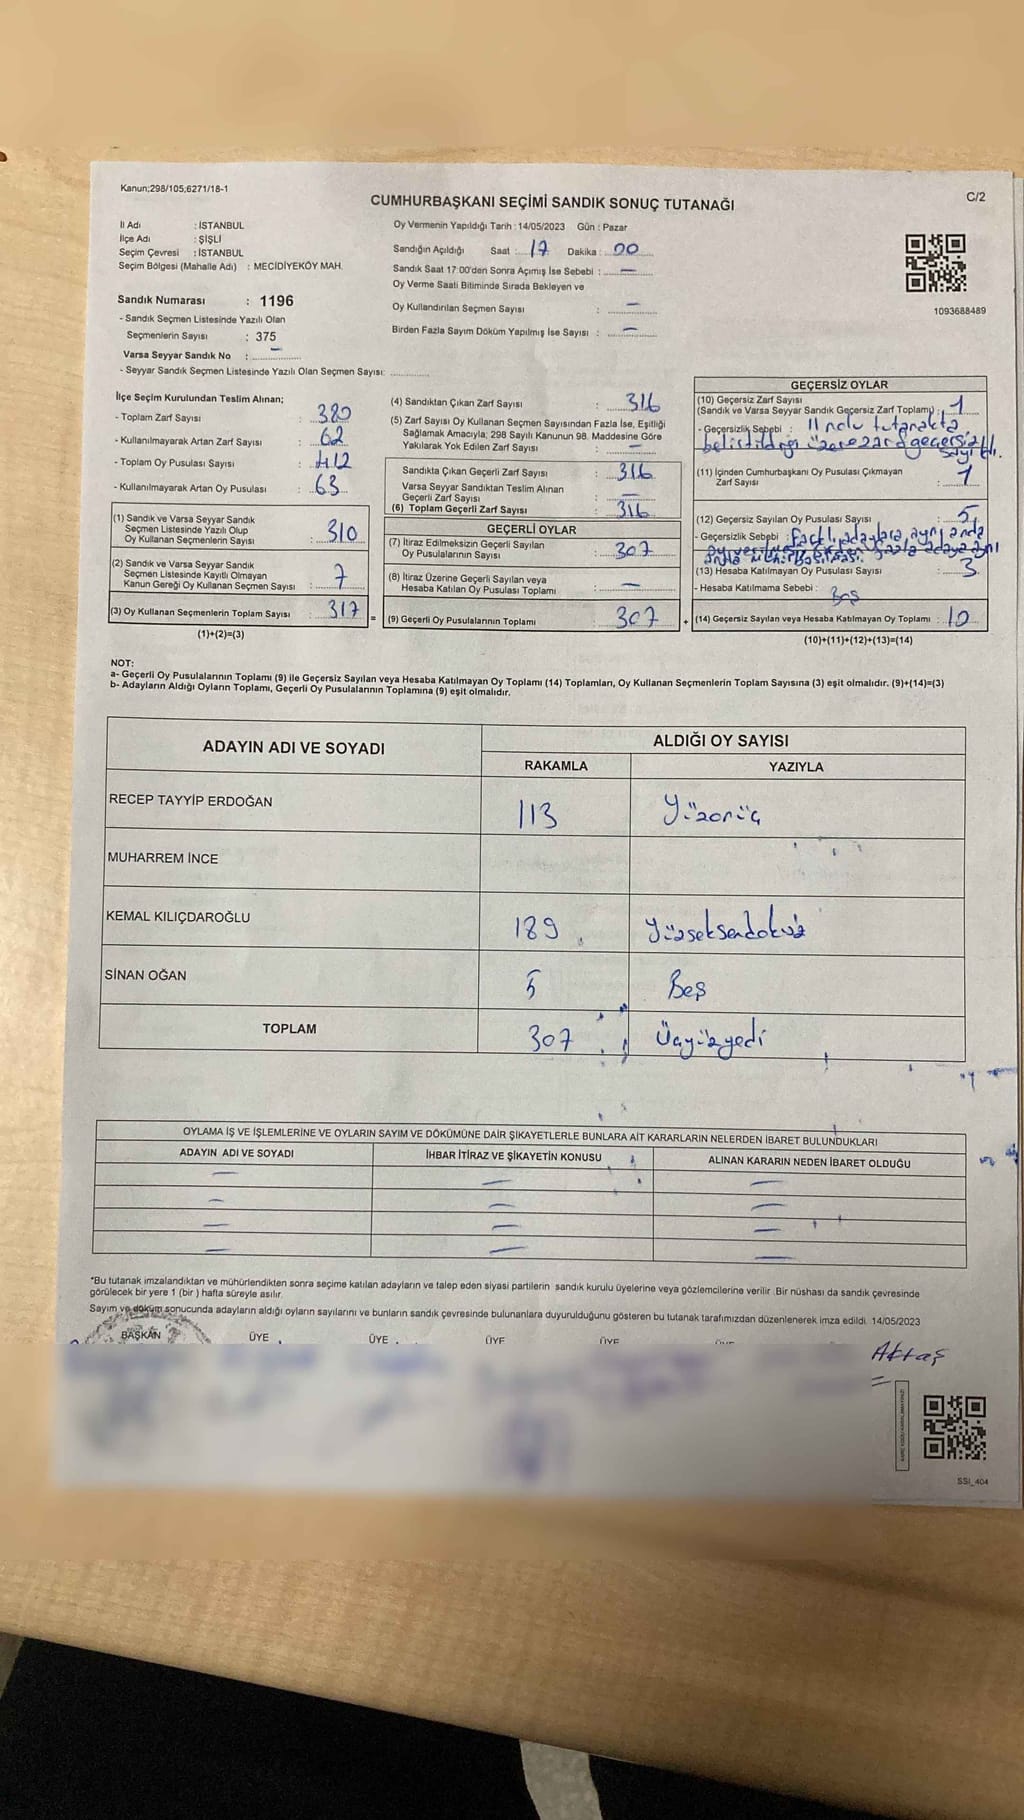 Kanun;298/105;6271/18-1
CUMHURBAŞKANI SEÇİMİ SANDIK SONUÇ TUTANAĞI
C/2
İl Adı : İSTANBUL
İlçe Adı : ŞİŞLİ
Seçim Çevresi : İSTANBUL
Seçim Bölgesi (Mahalle Adı) : MECİDİYEKÖY MAH.
Sandık Numarası : 1196
- Sandık Seçmen Listesinde Yazılı Olan
Seçmenlerin Sayısı : 375
Varsa Seyyar Sandık No : –
- Seyyar Sandık Seçmen Listesinde Yazılı Olan Seçmen Sayısı:
Oy Vermenin Yapıldığı Tarih : 14/05/2023 Gün : Pazar
Sandığın Açıldığı Saat : 17 Dakika : 00
Sandık Saat 17:00'den Sonra Açımış İse Sebebi : –
Oy Verme Saati Bitiminde Sırada Bekleyen ve
Oy Kullandırılan Seçmen Sayısı : –
Birden Fazla Sayım Döküm Yapılmış İse Sayısı : –
1093688489
İlçe Seçim Kurulundan Teslim Alınan;
- Toplam Zarf Sayısı : 380
- Kullanılmayarak Artan Zarf Sayısı : 62
- Toplam Oy Pusulası Sayısı : 412
- Kullanılmayarak Artan Oy Pusulası : 63
(1) Sandık ve Varsa Seyyar Sandık
Seçmen Listesinde Yazılı Olup
Oy Kullanan Seçmenlerin Sayısı : 310
(2) Sandık ve Varsa Seyyar Sandık
Seçmen Listesinde Kayıtlı Olmayan
Kanun Gereği Oy Kullanan Seçmen Sayısı : 7
(3) Oy Kullanan Seçmenlerin Toplam Sayısı : 317 =
(1)+(2)=(3)
(4) Sandıktan Çıkan Zarf Sayısı : 316
(5) Zarf Sayısı Oy Kullanan Seçmen Sayısından Fazla İse, Eşitliği
Sağlamak Amacıyla; 298 Sayılı Kanunun 98. Maddesine Göre
Yakılarak Yok Edilen Zarf Sayısı : –
Sandıkta Çıkan Geçerli Zarf Sayısı : 316
Varsa Seyyar Sandıktan Teslim Alınan
Geçerli Zarf Sayısı : –
(6) Toplam Geçerli Zarf Sayısı : 316
GEÇERLİ OYLAR
(7) İtiraz Edilmeksizin Geçerli Sayılan
Oy Pusulalarının Sayısı : 307
(8) İtiraz Üzerine Geçerli Sayılan veya
Hesaba Katılan Oy Pusulası Toplamı : –
(9) Geçerli Oy Pusulalarının Toplamı : 307 +
GEÇERSİZ OYLAR
(10) Geçersiz Zarf Sayısı
(Sandık ve Varsa Seyyar Sandık Geçersiz Zarf Toplamı) : 1
- Geçersizlik Sebebi : 11 nolu tutanakta
belirtildiği üzere zarf geçersiz
sayıldı.
(11) İçinden Cumhurbaşkanı Oy Pusulası Çıkmayan
Zarf Sayısı : 1
(12) Geçersiz Sayılan Oy Pusulası Sayısı : 5
- Geçersizlik Sebebi : Farklı adaylara aynı anda
(13) Hesaba Katılmayan Oy Pusulası Sayısı : 3
- Hesaba Katılmama Sebebi : Boş
(14) Geçersiz Sayılan veya Hesaba Katılmayan Oy Toplamı : 10
(10)+(11)+(12)+(13)=(14)
NOT:
a- Geçerli Oy Pusulalarının Toplamı (9) ile Geçersiz Sayılan veya Hesaba Katılmayan Oy Toplamı (14) Toplamları, Oy Kullanan Seçmenlerin Toplam Sayısına (3) eşit olmalıdır. (9)+(14)=(3)
b- Adayların Aldığı Oyların Toplamı, Geçerli Oy Pusulalarının Toplamına (9) eşit olmalıdır.
ADAYIN ADI VE SOYADI
ALDIĞI OY SAYISI
RAKAMLA YAZIYLA
RECEP TAYYİP ERDOĞAN 113 Yüzonüç
MUHARREM İNCE
KEMAL KILIÇDAROĞLU 189 Yüzseksendokuz
SİNAN OĞAN 5 Beş
TOPLAM 307 Üçyüzyedi
OYLAMA İŞ VE İŞLEMLERİNE VE OYLARIN SAYIM VE DÖKÜMÜNE DAİR ŞİKAYETLERLE BUNLARA AİT KARARLARIN NELERDEN İBARET BULUNDUKLARI
ADAYIN ADI VE SOYADI İHBAR İTİRAZ VE ŞİKAYETİN KONUSU ALINAN KARARIN NEDEN İBARET OLDUĞU
– – –
– – –
– – –
– – –
*Bu tutanak imzalandıktan ve mühürlendikten sonra seçime katılan adayların ve talep eden siyasi partilerin sandık kurulu üyelerine veya gözlemcilerine verilir. Bir nüshası da sandık çevresinde
görülecek bir yere 1 (bir ) hafta süreyle asılır.
Sayım ve döküm sonucunda adayların aldığı oyların sayılarını ve bunların sandık çevresinde bulunanlara duyurulduğunu gösteren bu tutanak tarafımızdan düzenlenerek imza edildi. 14/05/2023
BAŞKAN ÜYE ÜYE ÜYE ÜYE ÜYE
Aktaş
SSI_404